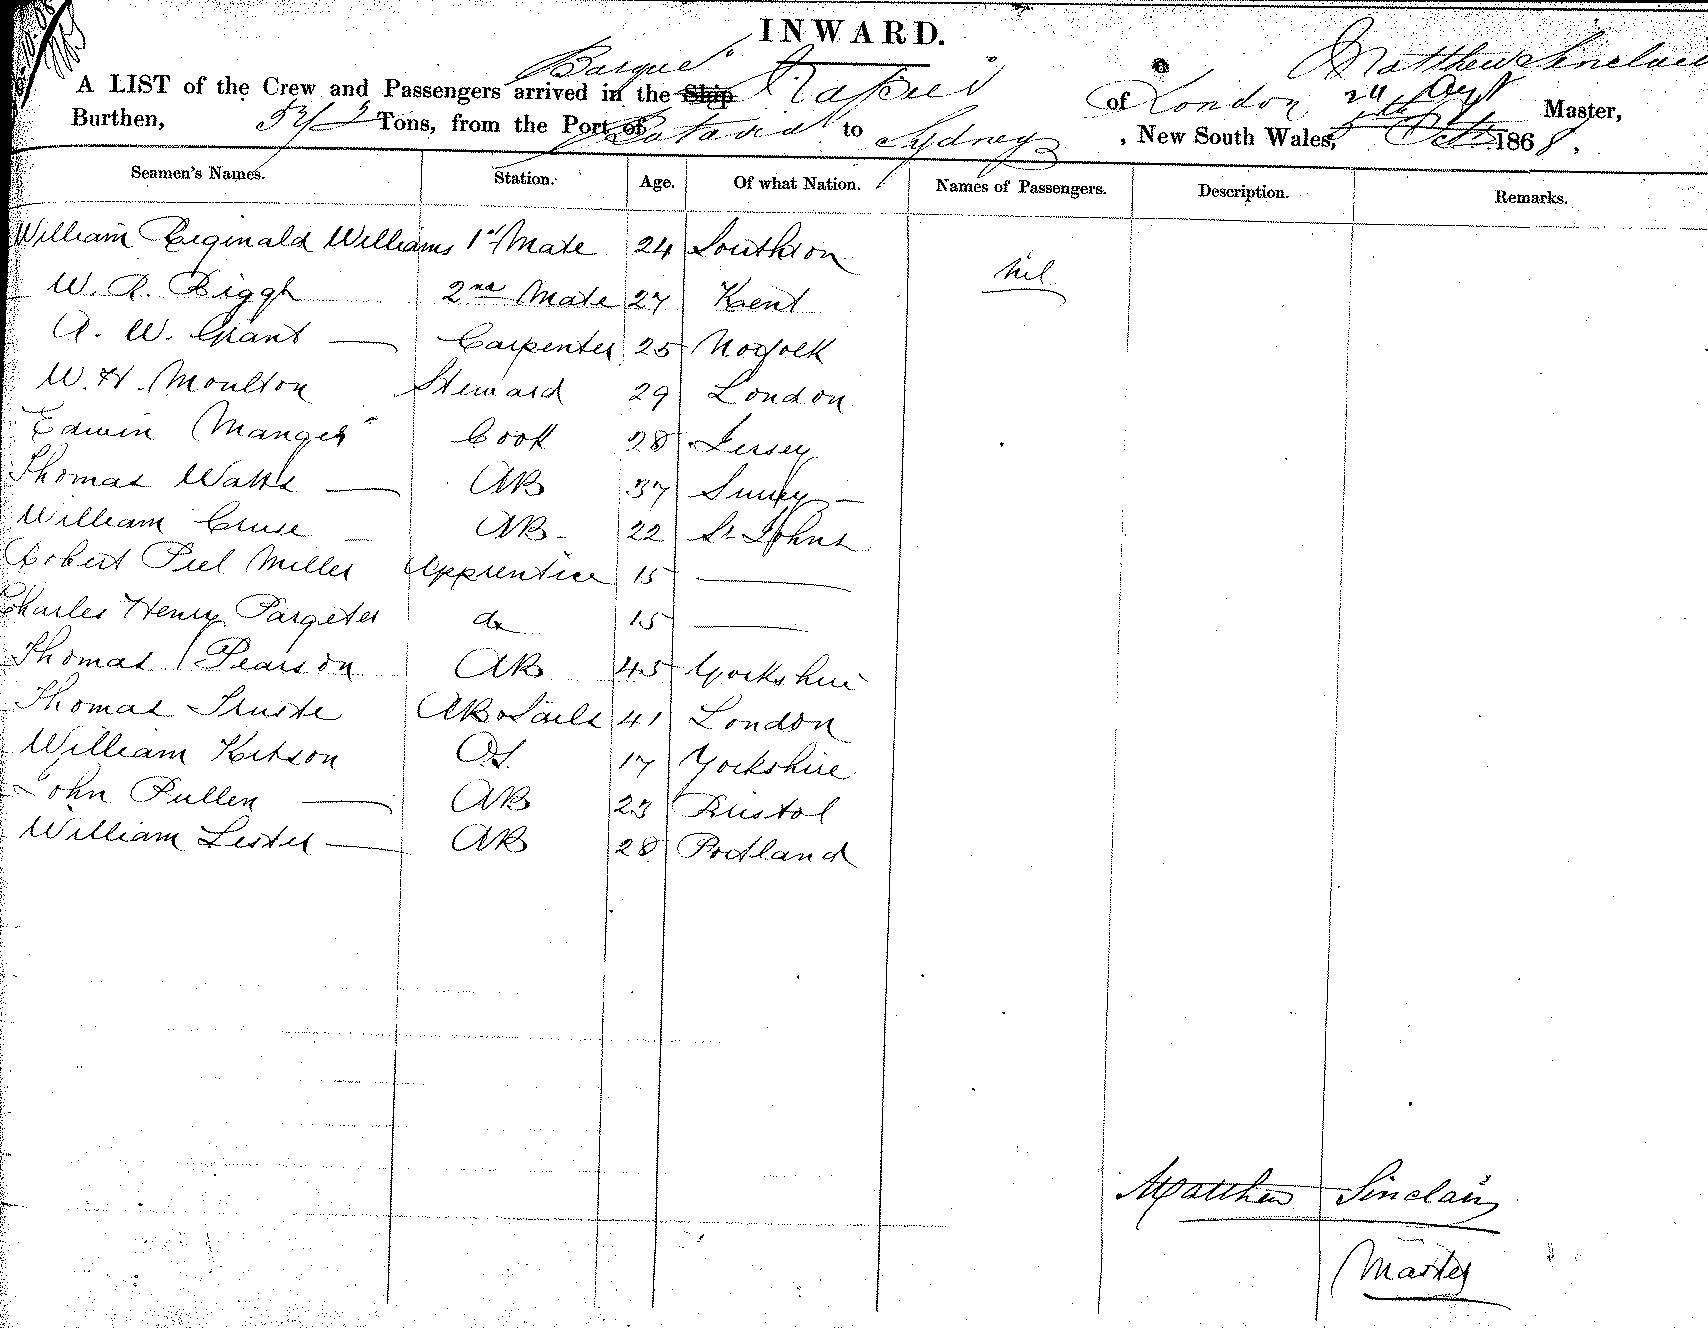 INWARD.
A LIST of the Crew and Passengers arrived in the Ship Barque of London Matthew Sinclair Master,
Burthen, Tons, from the Port of Batavia to Sydney, New South Wales, 5th Oct 1868.
Seamen's Names. Station. Age. Of what Nation. Names of Passengers. Description. Remarks.
William Reginald Williams 1st Mate 24 Southton
Nil
W. R. Biggh 2nd Mate 27 Kent
A. W. Grant Carpenter 25 Norfolk
W. H. Moulton Steward 29 London
Edwin Manger Cook 28 Jersey
Thomas Watts AB 37 Surrey
William Cruse AB 22 St Johns
Robert Peel Miller Apprentice 15
Charles Henry Pargeter do 15
Thomas Pearson AB 45 Yorkshire
Thomas AB & Sails 41 London
William Kitson OS 17 Yorkshire
John Pullen AB 23 Bristol
William Lester AB 28 Portland
Matthew Sinclair
Master